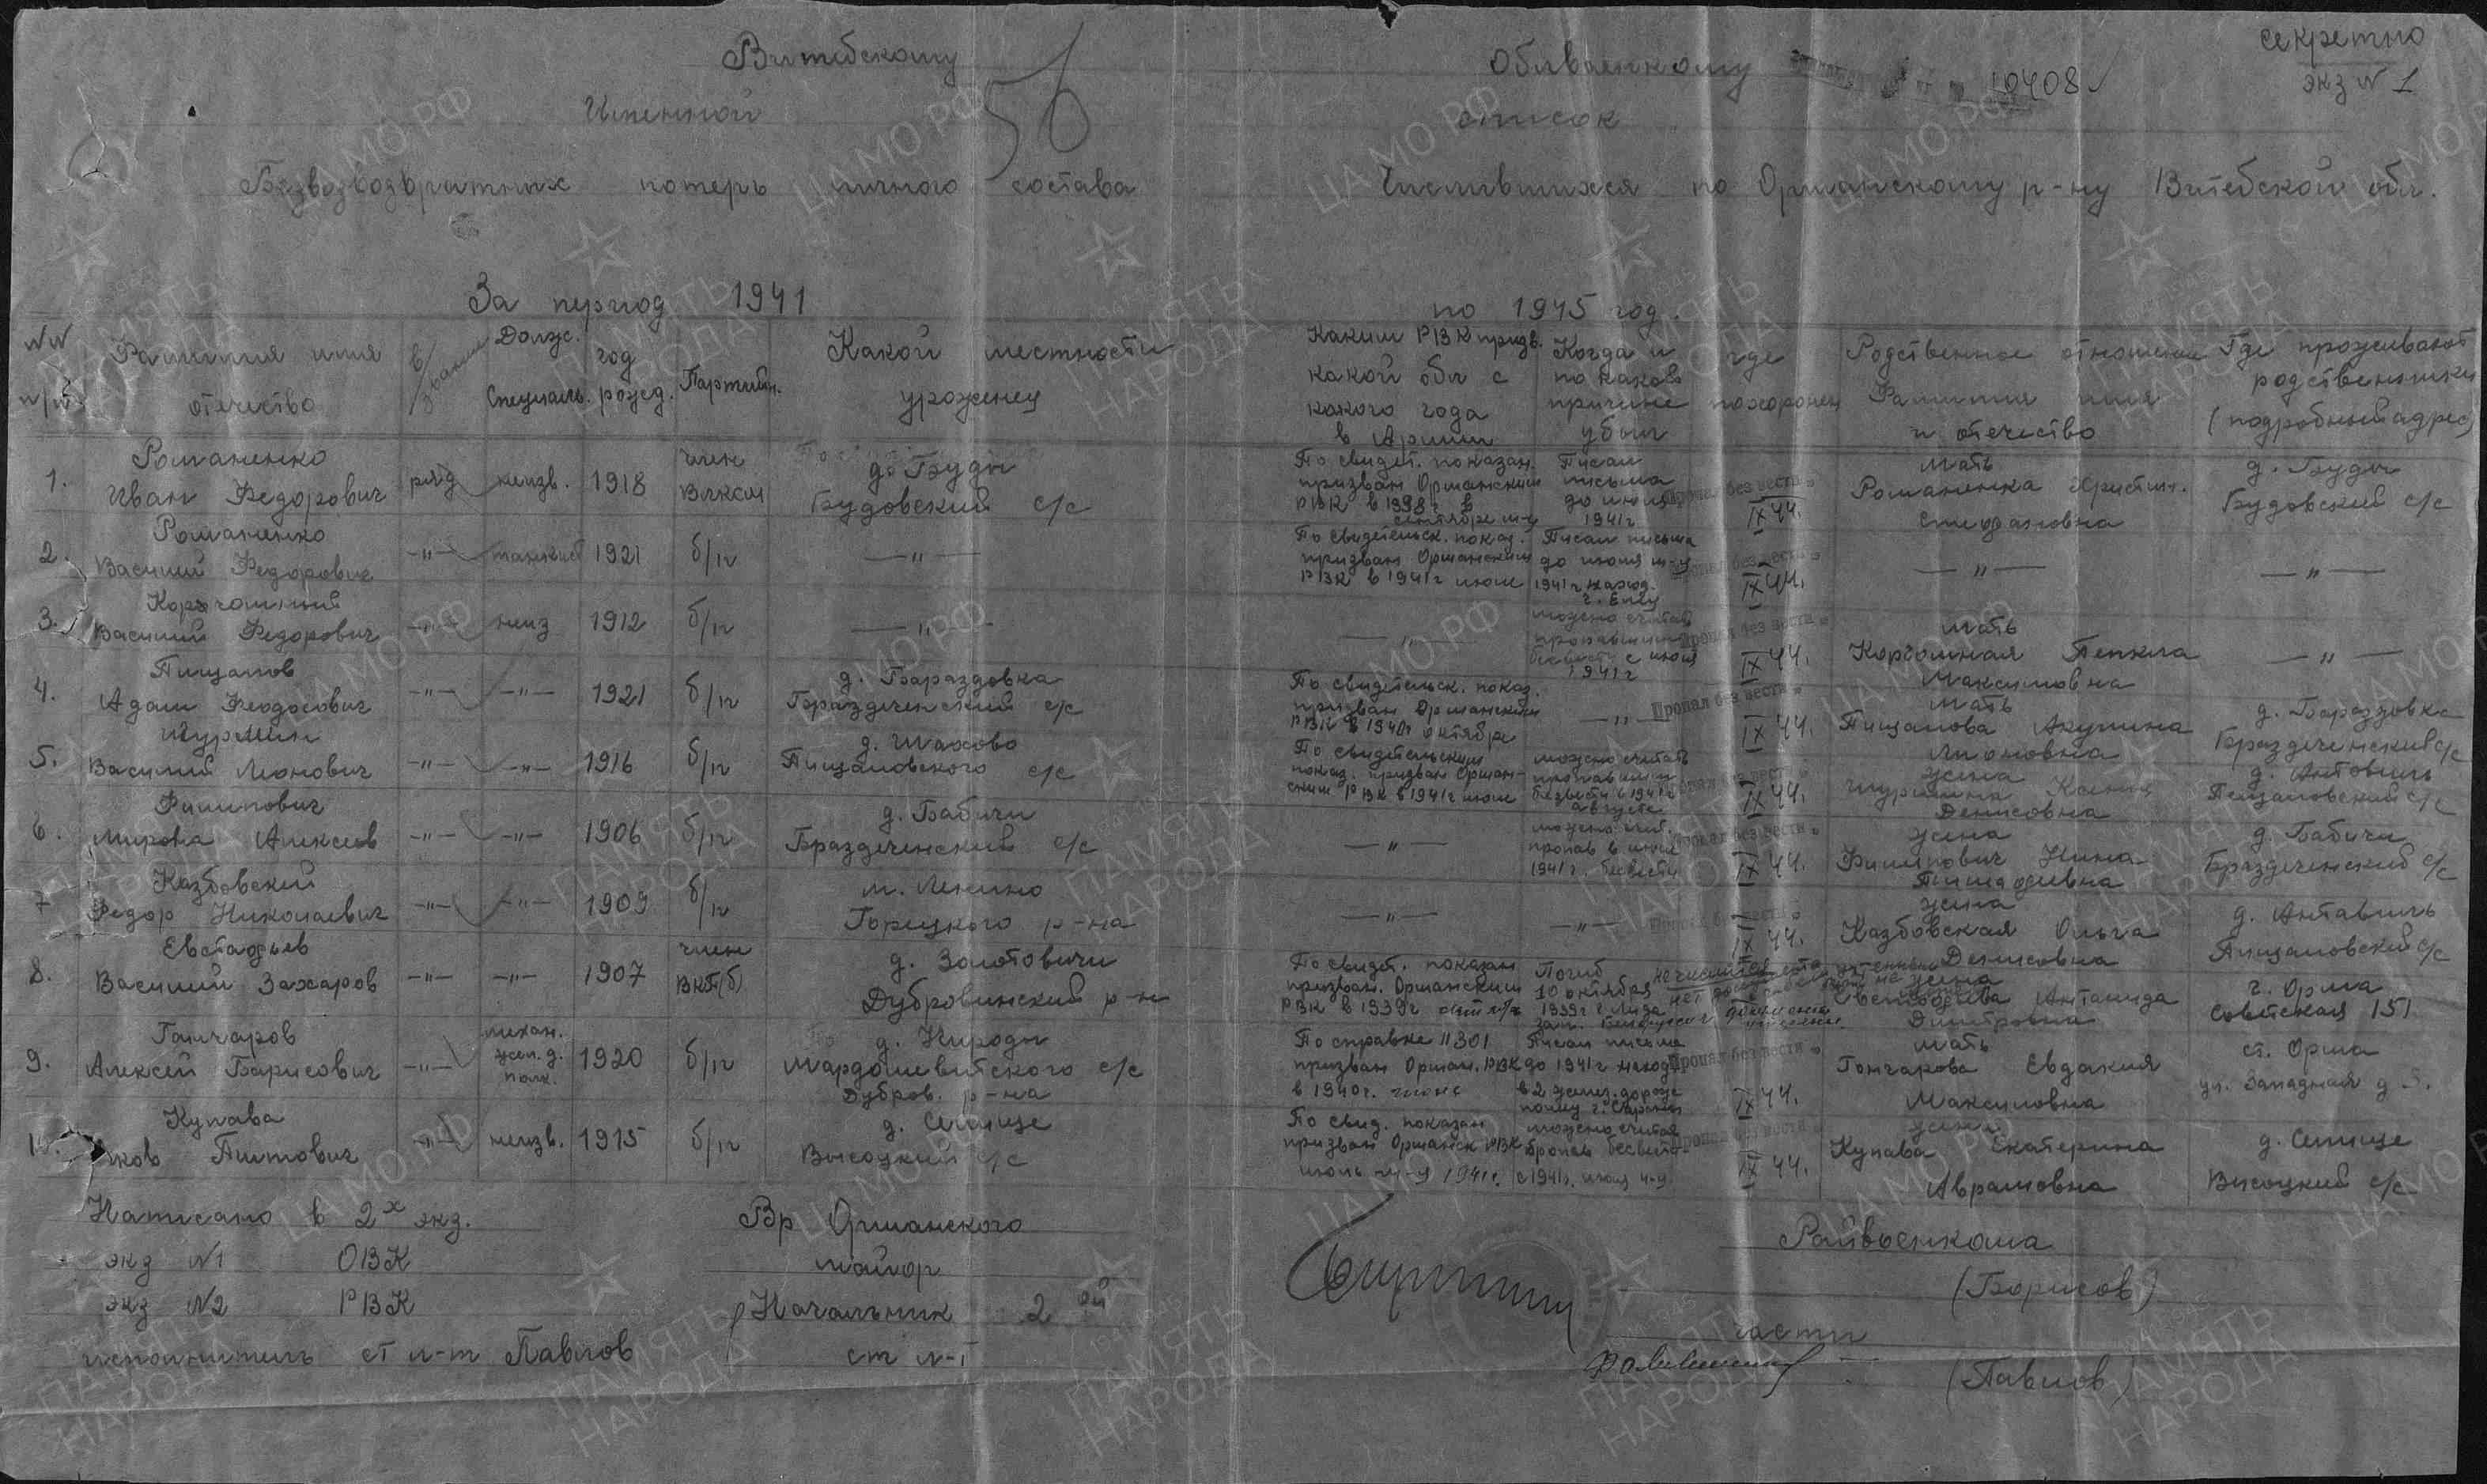 Секретно
экз N 1
Витебскому Облвоенкому
10408
56
Именной список
Безвозводвратных потерь личного состава Числившихся по Оршанскому р-ну Витебской обл.
За период 1941 по 1945 год.
NN п/п
Фамилия имя отечество
в/звание
Долж. Специальн.
год рожд.
Партийн.
Какой местности уроженец
Каким РВК призв. какой обл с какого года в Армии
Когда и по какой причине убыл
где похоронен
Родственное отношение Фамилия имя и отечество
Где проживают родственники (подробный адрес)
1.
Романенко
Иван Федорович
ряд
неизв.
1918
член
ВЛКСМ
д. Буды
Будовский с/с
По свидет. показан.
призван Оршанским
РВК в 1938г. в
сентябре м-ц
Писал
письма
до июля
1941г
Пропал без вести
IX 44.
мать
Романенка Христин.
Стефановна
д. Буды
Будовский с/с
2.
Романенко
Василий Федорович
—"—
танкист
1921
б/п
—"—
По свидетельск. показ.
призван Оршанским
РВК в 1941г июле
Писал письма
до июля м-ц
1941г наход.
Пропал без вести
IX 44.
—"—
—"—
3.
Василий Федорович
—"—
неиз
1912
б/п
—"—
—"—
можно считать
пропавшим
безвести с июля
1941г
Пропал без вести
IX 44.
мать
Корчомная Текля
Максимовна
—"—
4.
Пищалов
Адам Феодосович
—"—
—"—
1921
б/п
д. Бараздовка
Браздеченский с/с
По свидетельск. показ.
призван Оршанским
РВК в 1940г октября
—"—
Пропал без вести
IX 44.
мать
Пищалова Акулина
Леоновна
д. Бараздовка
Браздеченский с/с
5.
Шурмин
Василий Леонович
—"—
—"—
1916
б/п
д. Шахово
Пищаловского с/с
По свидетельским
показ. призван Оршан-
ским РВК в 1941г июле
можно считать
пропавшим
безвести в 1941г
августе
Пропал без вести
IX 44.
жена
Шурмина Ксения
Денисовна
д. Антовиль
Пищаловский с/с
6.
Филипович
Мирона Алексеев
—"—
—"—
1906
б/п
д. Бабичи
Браздеченский с/с
—"—
можно счит.
пропав в июле
1941г. безвести
Пропал без вести
IX 44.
жена
Филипович Нина
д. Бабичи
Браздеченский с/с
7
Казбовский
Федор Николаевич
—"—
—"—
1909
б/п
м. Ленино
Горецкого р-на
—"—
—"—
Пропал без вести
IX 44.
жена
Казбовская Ольга
Денисовна
д. Антавиль
Пищаловский с/с
8.
Евстафьев
Василий Захаров
—"—
—"—
1907
член
ВКП(б)
д. Золотовичи
Дубровинский р-н
По свидет. показан
призван. Оршанским
РВК в 1939г
Погиб
10 октября
1939г г. Лида
жена
Евстафьева Антанида
Дмитровна
г. Орша
Советская 151
9.
Ганчаров
Алексей Барисович
—"—
механ.
жел. д.
полк.
1920
б/п
д. Кироды
Дубров. р-на
По справке 11301
призван Оршан. РВК
в 1940г. июне
Писал письма
до 1941г наход
в 2 желез. дороже
полку
Пропал без вести
IX 44.
мать
Гончарова Евдакия
Максимовна
ст. Орша
ул. Западная д 5.
10.
Купава
Яков Титович
—"—
неизв.
1915
б/п
д. Селище
Высоцкий с/с
По свид. показан
призван Оршанск РВК
июль м-ц 1941г.
можно считать
пропав безвест
с 1941г. июля м-ц
Пропал без вести
IX 44.
жена
Купава Екатерина
Аврамовна
д. Селище
Высоцкий с/с
Написано в 2х экз.
экз N1 ОВК
экз N2 РВК
исполнитель ст л-т Павлов
Вр Оршанского Райвоенкома
майор (Борисов)
Начальник 2ой части
ст л-т (Павлов)
ЦАМО РФ
ПАМЯТЬ НАРОДА